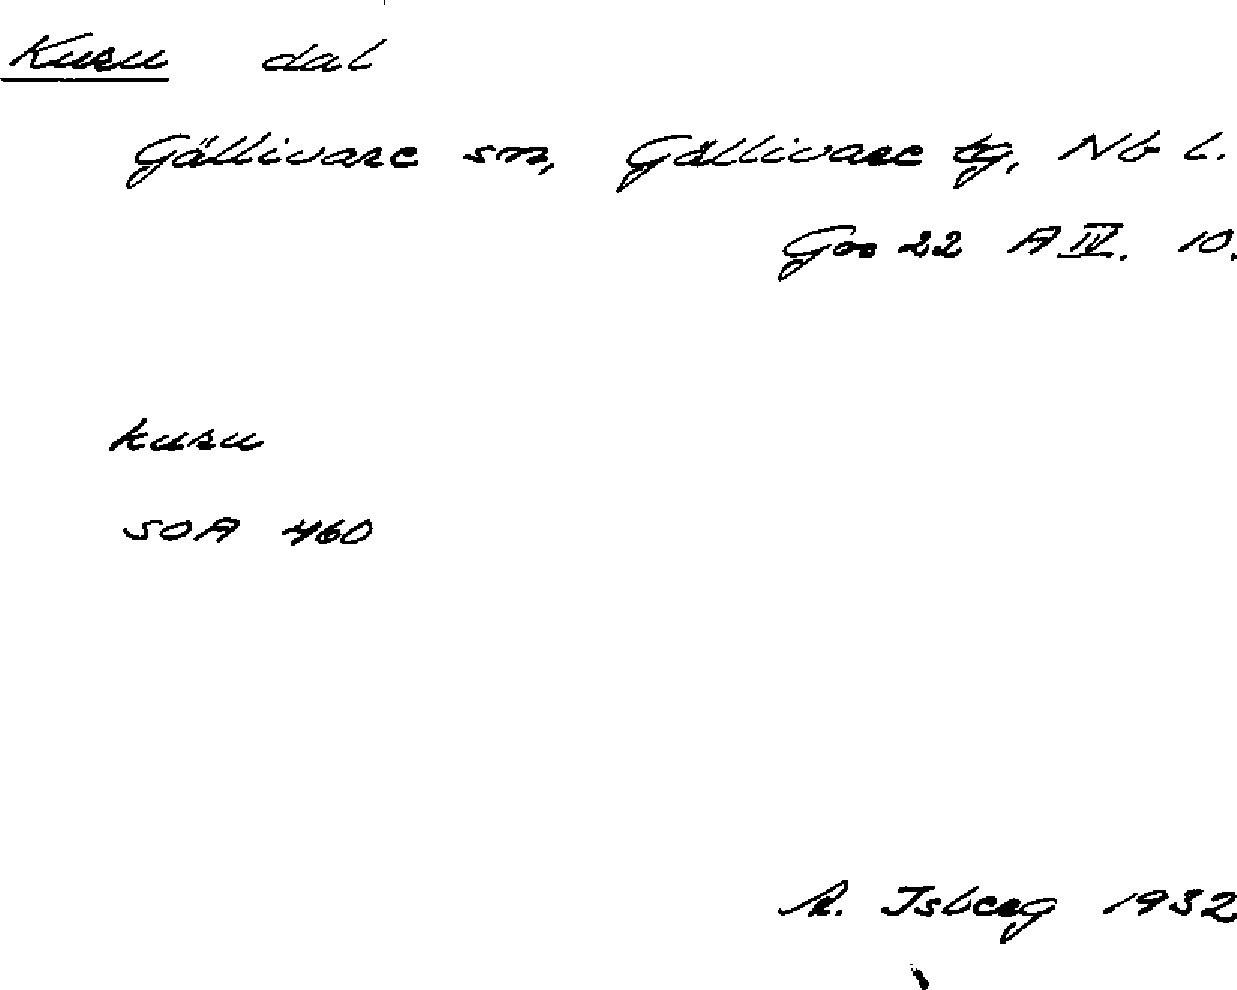 Kuru dal
Gällivare sn, Gällivare tg, Nb l.
Geo 22 A IV. 10.
kuru
SOA 460
R. Isberg 1932